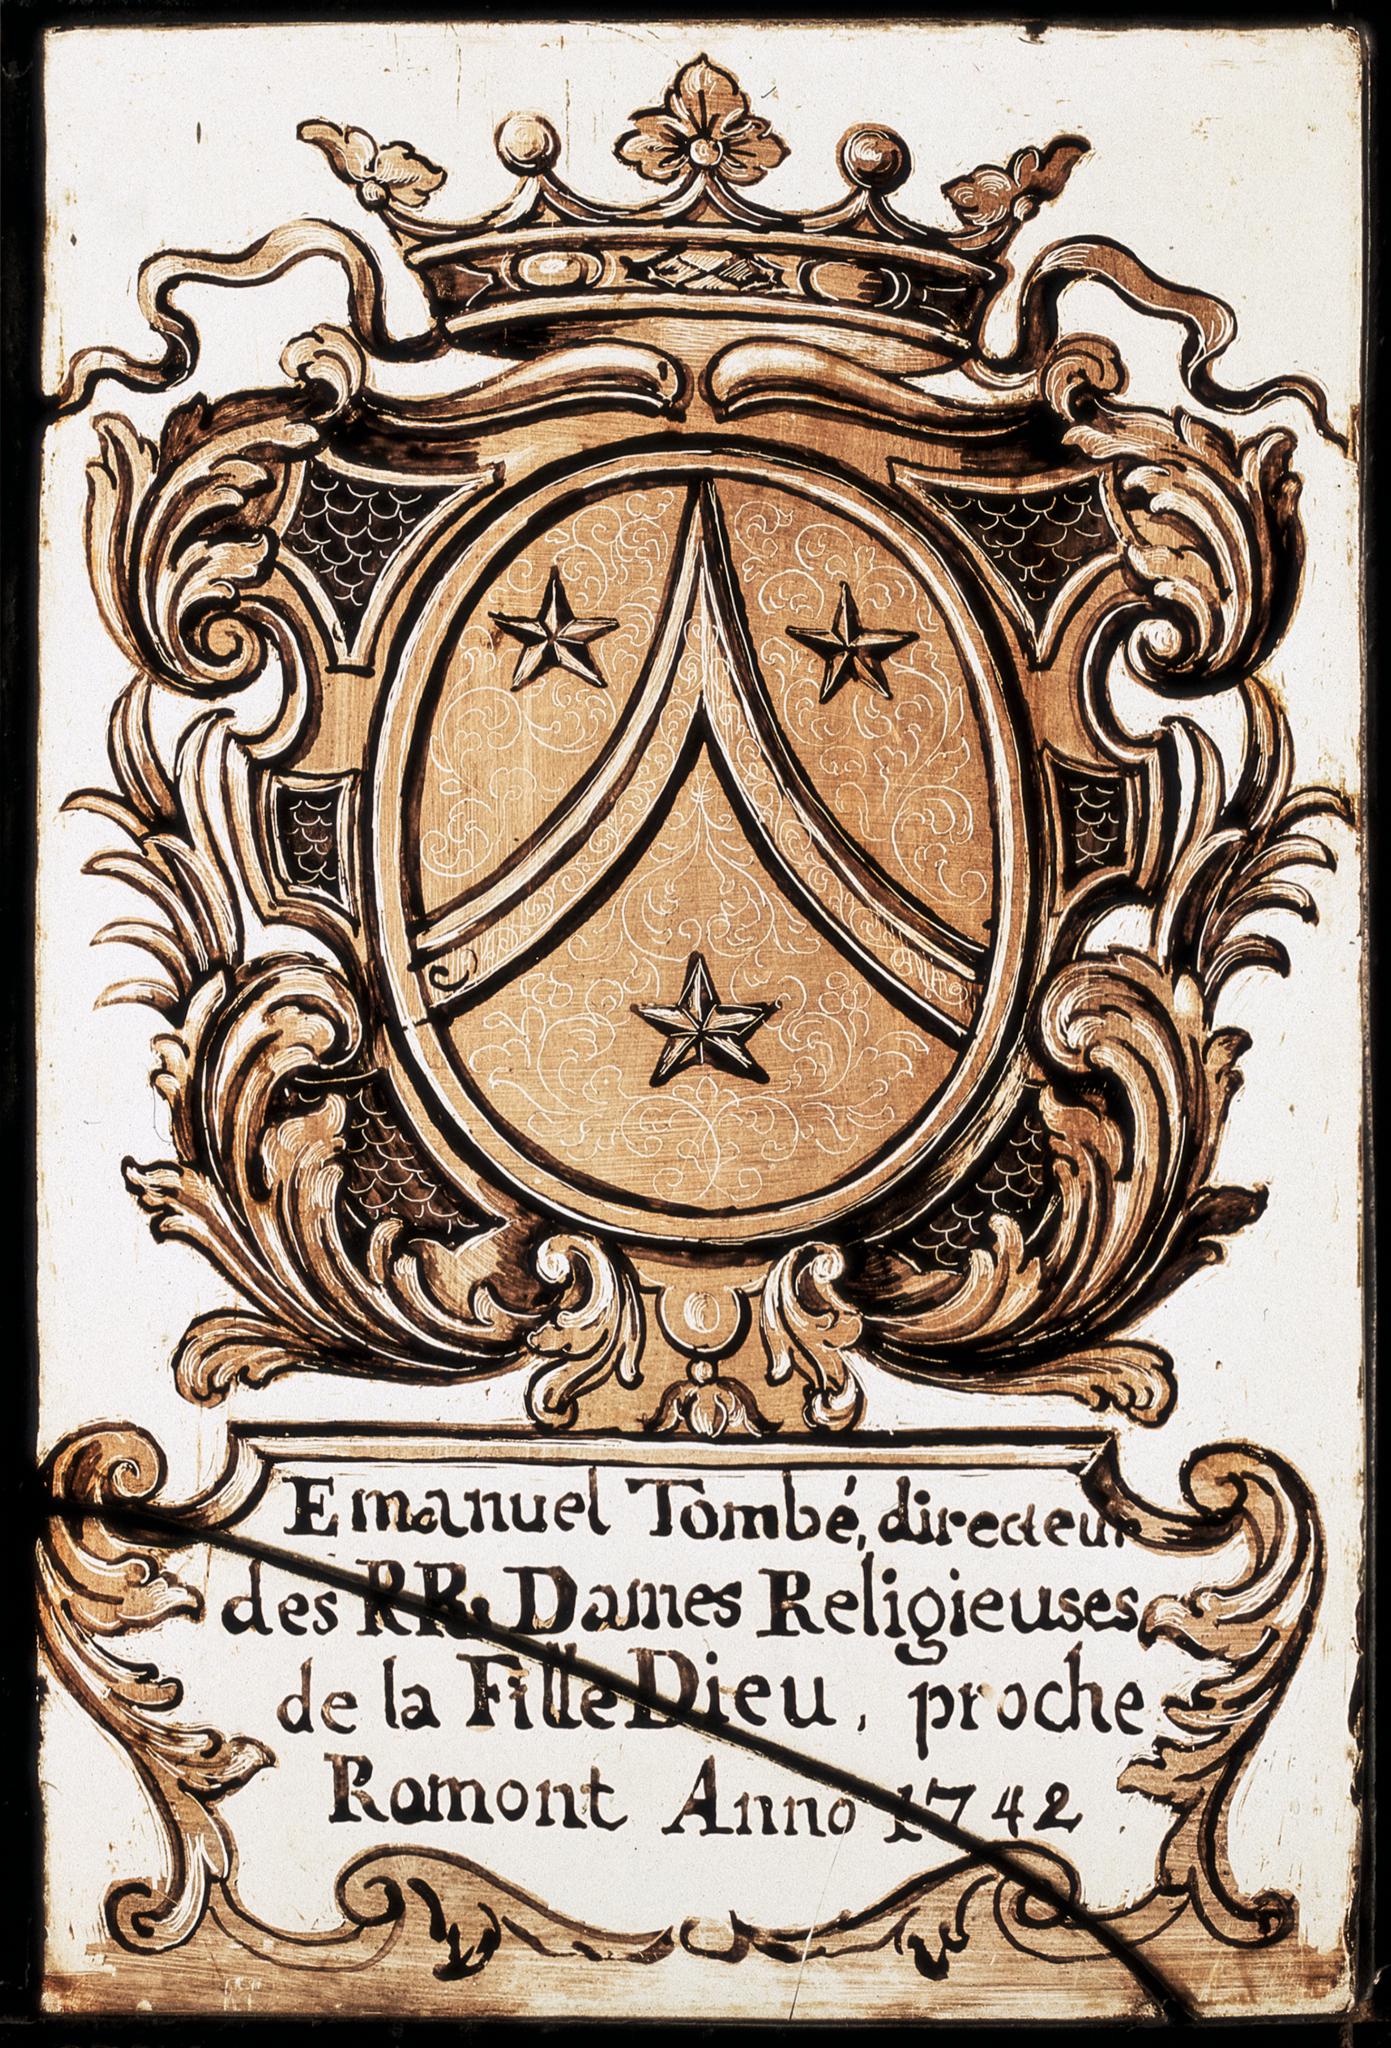 Emanuel Tombé, directeur
des RR. Dames Religieuses
de la Fille Dieu, proche
Romont Anno 1742